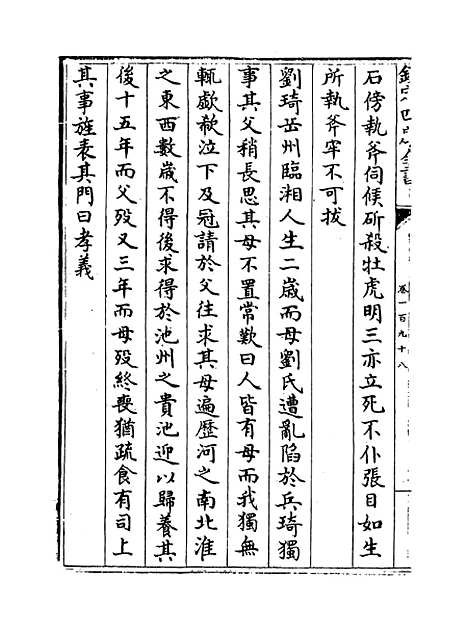 欽定四庫全書
卷一百九十八
石傍執斧伺候斫殺牡虎明三亦立死不仆張目如生
所執斧牢不可拔
劉琦岳州臨湘人生二歲而母劉氏遭亂陷於兵琦獨
事其父稍長思其母不置常歎曰人皆有母而我獨無
輒歔欷泣下及冠請於父往求其母遍歷河之南北淮
之東西數歲不得後求得於池州之貴池迎以歸養其
後十五年而父歿又三年而母歿終喪猶疏食有司上
其事旌表其門曰孝義